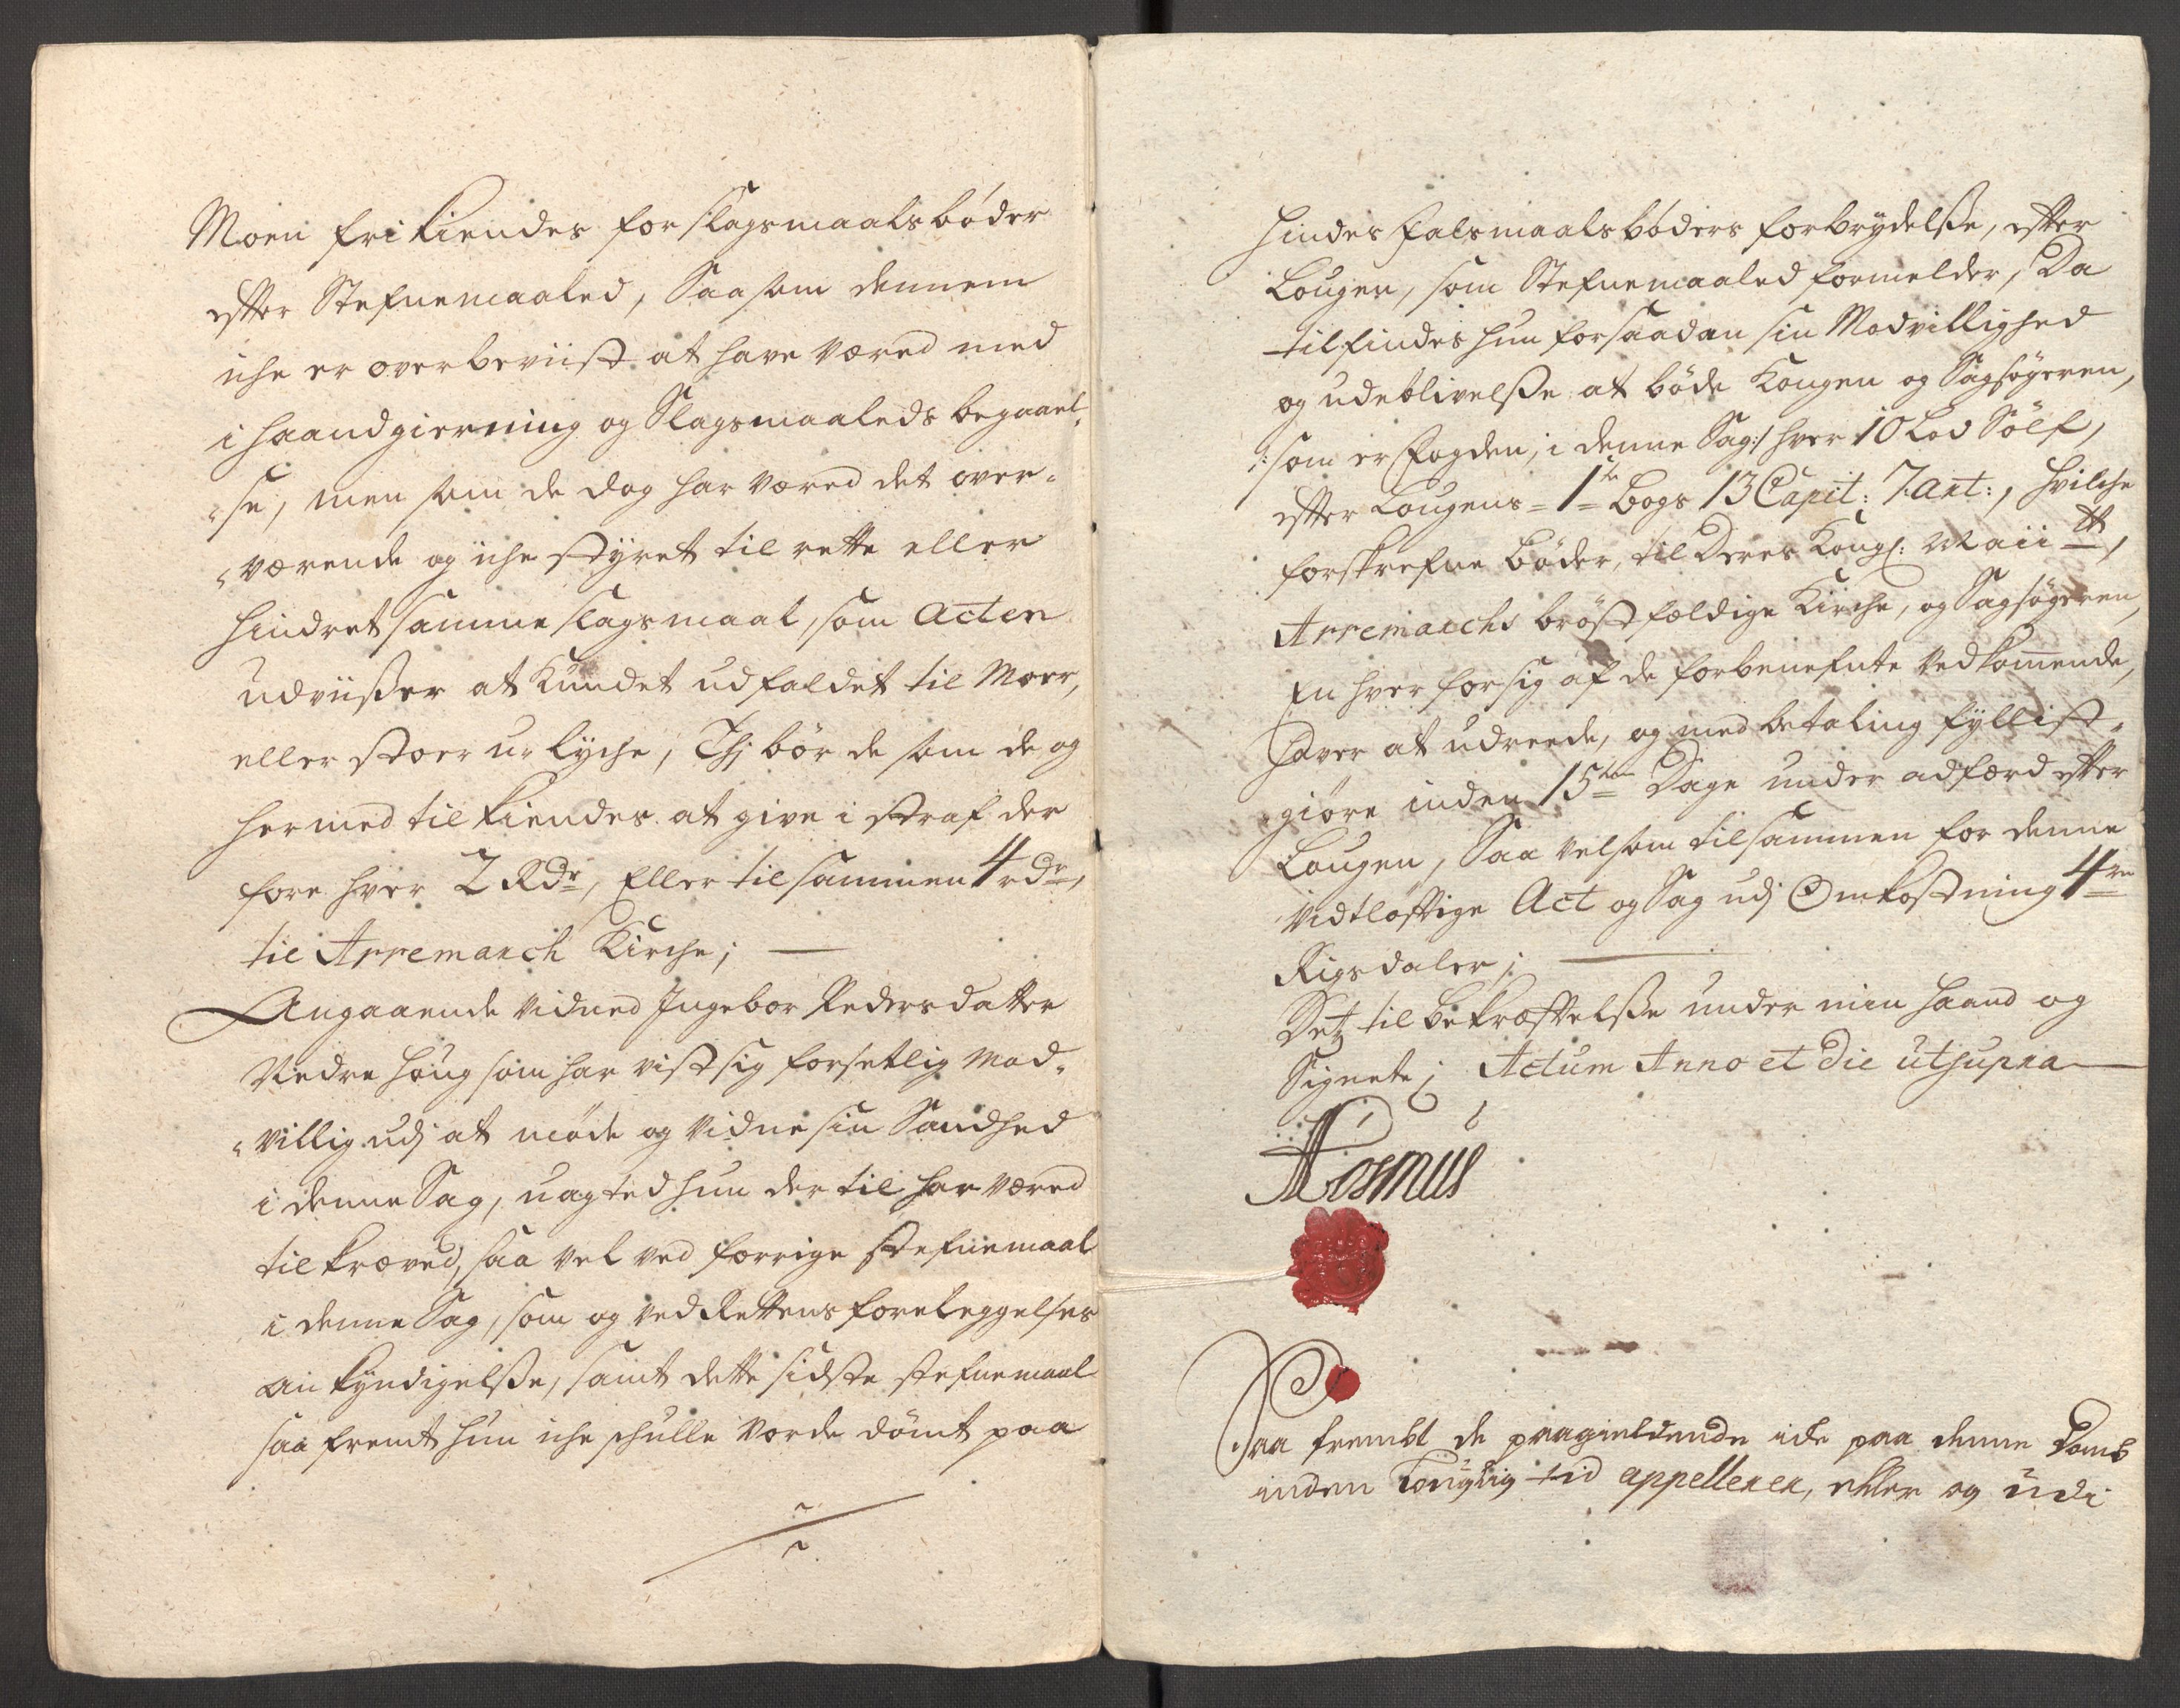 Moen frikiendes for slagsmaalsbøder
efter Stefnemaaled, Saasom dennem
iche er overbeviist at have været med
i haandgierning og Slagsmaaleds begaael-
-se, men som de dog har været det over-
-værende og iche styret til rette eller
hindret samme slagsmaal, som Acten
udviißer at kundet udfaldet til Moer,
eller stoer u-lyche, Thj bør de som de og
hermed tilkiendes at give i straf der
fore hver 2 Rdr, Eller tilsammen 4 rdr,
til Arremarch Kirche;
Angaaende vidned Ingebor Pedersdatter
Nedre Houg som har vist sig forsetlig mod-
-villig udj at møde og vidne sin Sandhed
i denne Sag, uagted hun der til har været
tilkræved, saa vel ved forrige stefnemaal
i denne Sag, som og ved Rettens foreleggelses
ankyndigelße, samt dette sidste stefnemaal
saa fremt hun iche schulle vorde dømt paa
hindes falsmaals bøders forbrydelße, efter
Lougen, som Stefnemaaled formelder, Da
tilfindes hun for saadan sin Modvillighed
og udeblivelße at bøde Kongen og Sagsøgeren,
/:som er fogden, i denne Sag:/ hver 10 Lod Sølf,
efter Lougens 1te bogs 13 Capit: 7 art:, hvilche
forskrefne bøder, til Deres Kongl: Maiitt,
Arremarchs brøstfældige Kirche, og Sagsøgeren,
En hver for sig af de forbenefnte vedkommende,
haver at udreede, og med betaling fyllist-
-giøre inden 15ten Dage under adfærd efter
Lougen, Saa velsom tilsammen for denne
vidtløftige Act og Sag udj Omkostning 4re
Rigsdaler;
Det til bekræftelße under min haand og
Signete; Actum Anno et Die utsupra
Saa frembt de paagieldende icke paa denne Domb
inden louglig tid appellerer, eller og udi